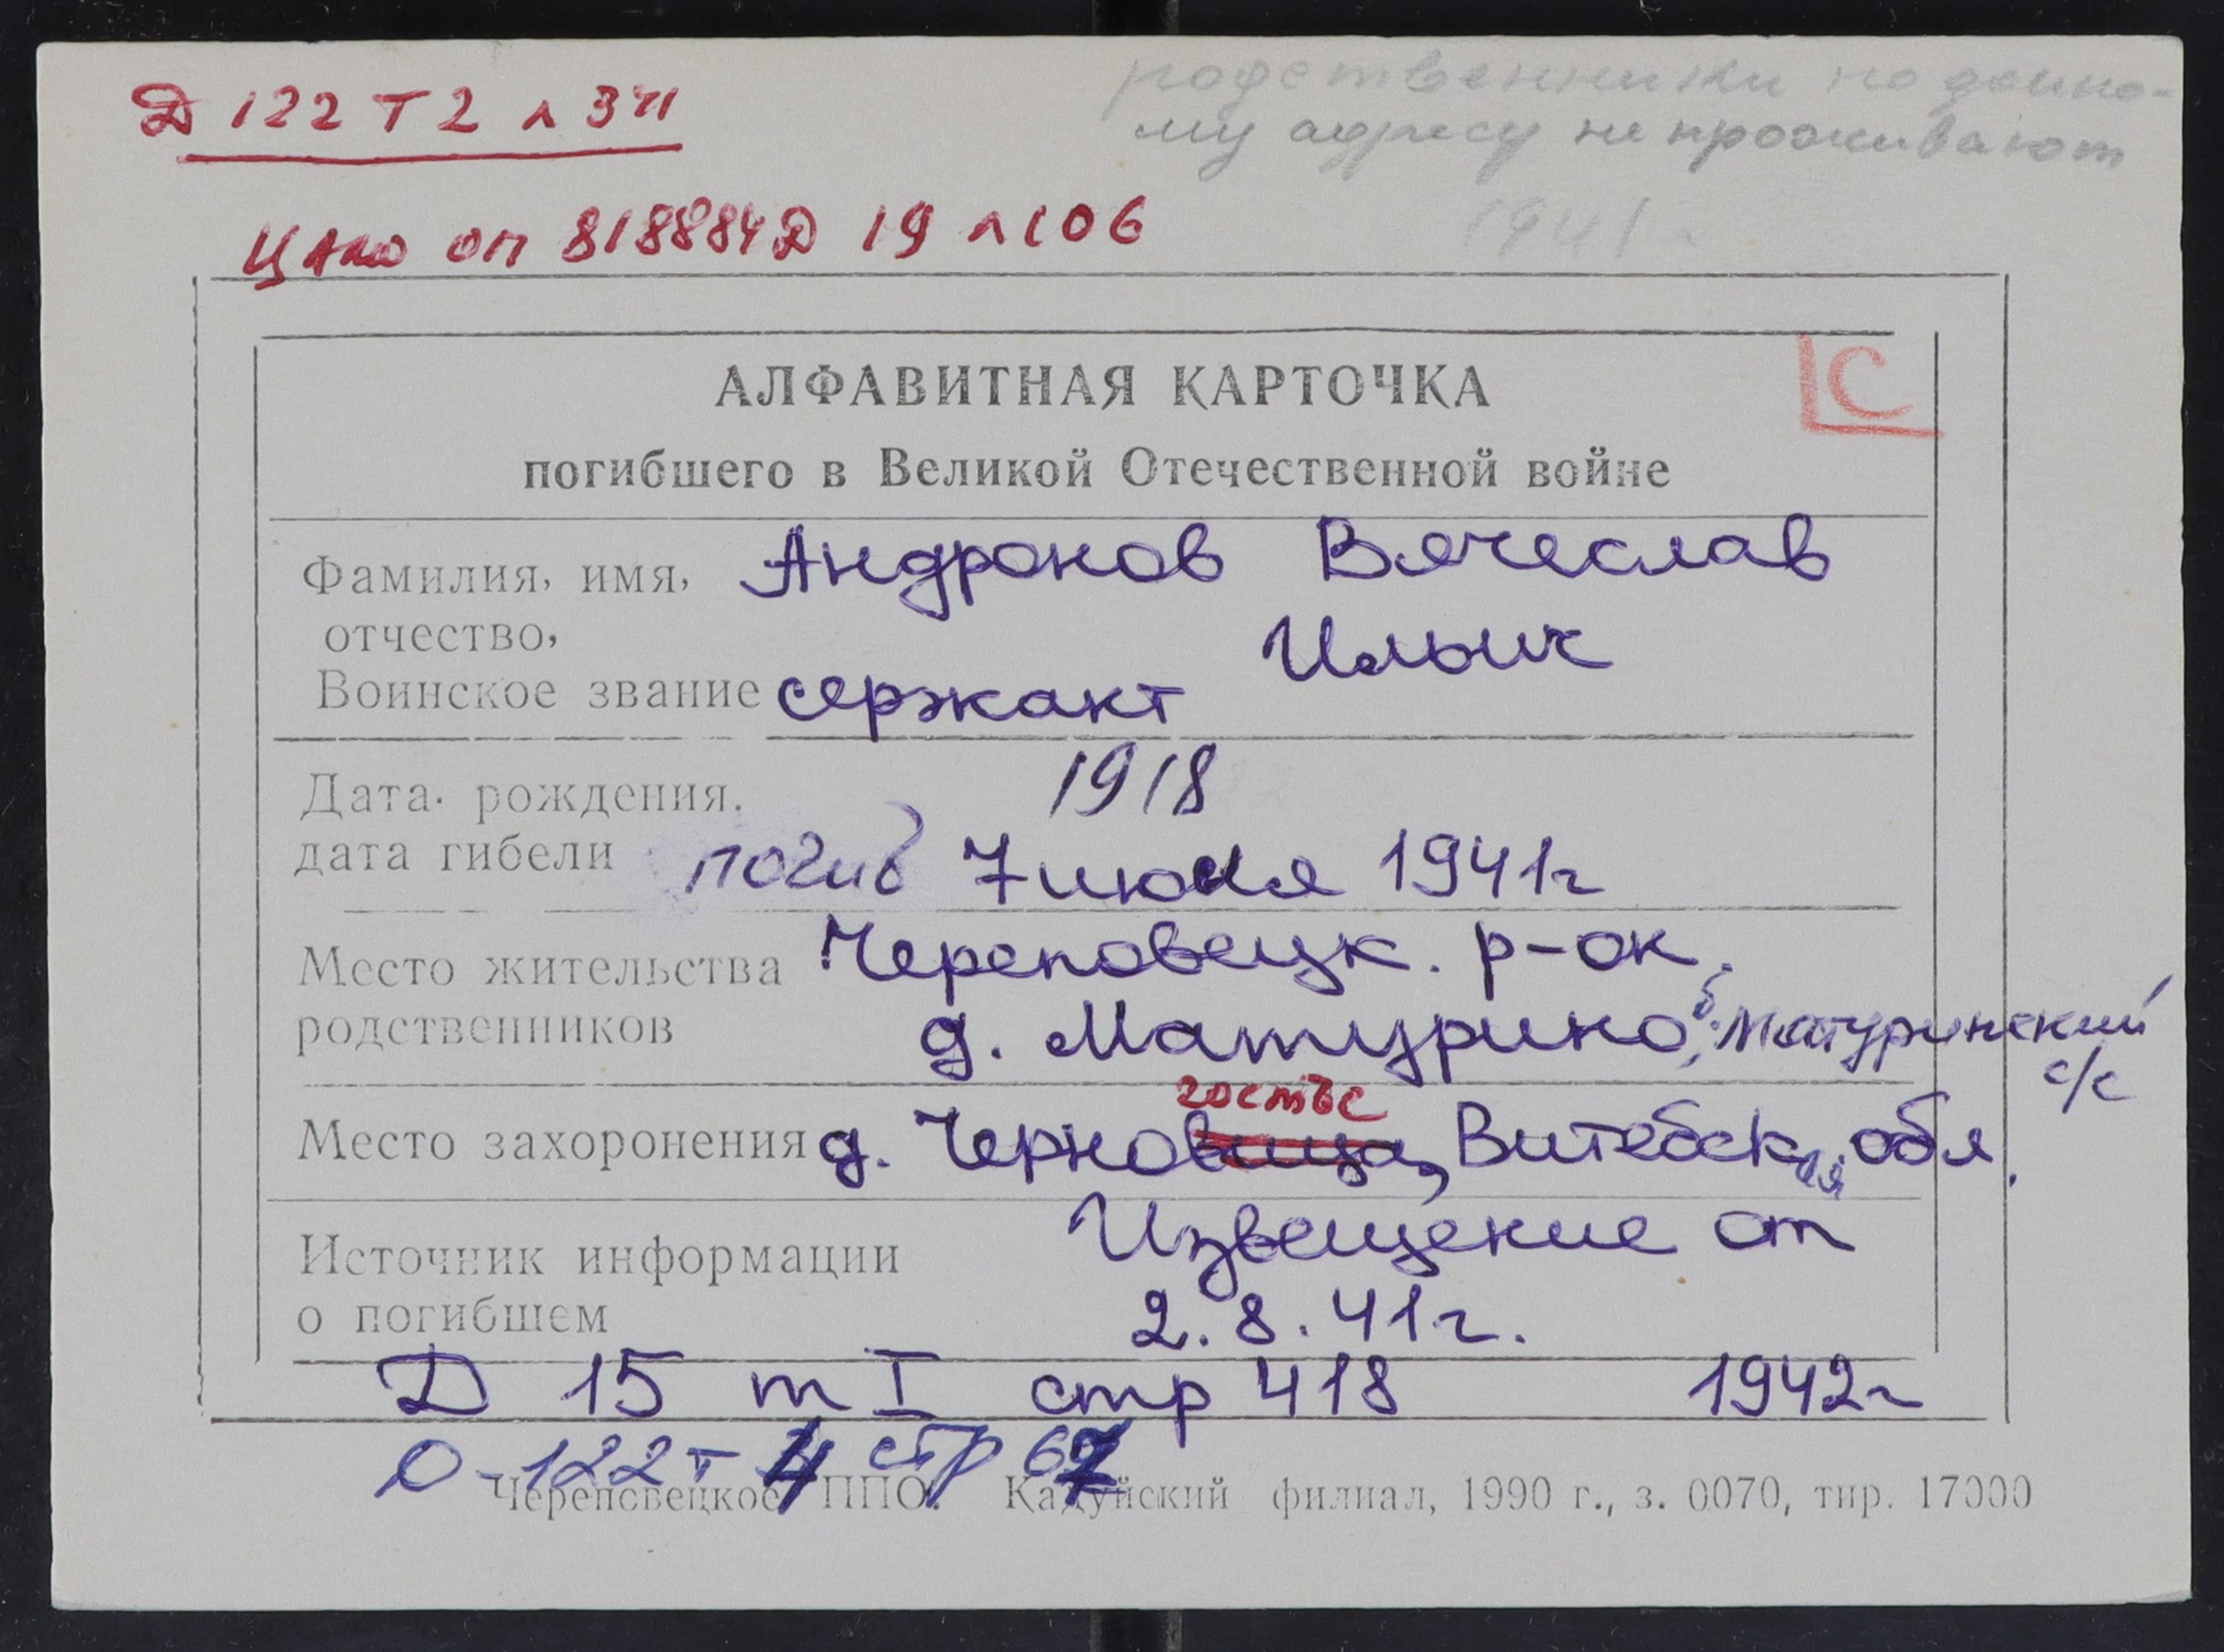 Д 122 Т 2 л 341
родственники по данно-
му адресу не проживают
ЦАМО оп 818884 Д 19 л 106
1941 г
С
АЛФАВИТНАЯ КАРТОЧКА
погибшего в Великой Отечественной войне
Фамилия, имя, Андронов Вячеслав
отчество, Ильич
Воинское звание сержант
Дата рождения. 1918
дата гибели погиб 7 июля 1941г
Место жительства Череповецк. р-он,
родственников д. Матурино, б. Матуринский
с/с
госты
Место захоронения д. Черновица, Витебская обл.
Источник информации Извещение от
о погибшем 2.8.41г.
Д 15 т I стр 418 1942г
О-122 т 4 стр 67
Череповецкое ППО. Кадуйский филиал, 1990 г., з. 0070, тир. 17000